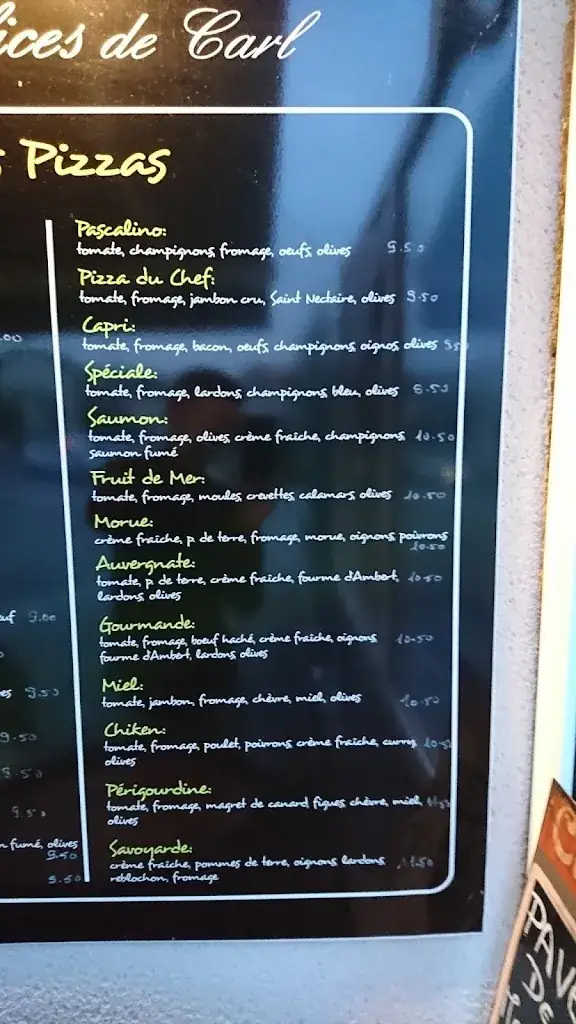 ices de Carl
s Pizzas
Pascalino:
tomate, champignons, fromage, oeufs, olives 9.50
Pizza du Chef:
tomate, fromage, jambon cru, Saint Nectaire, olives 9.50
Capri:
tomate, fromage, bacon, oeufs, champignons, oignos, olives
Spéciale:
tomate, fromage, lardons, champignons, bleu, olives
Saumon:
tomate, fromage, olives, crème fraîche, champignons, 10.50
saumon fumé
Fruit de Mer:
tomate, fromage, moules, crevettes, calamars, olives 10.50
Morue:
crème fraîche, p. de terre, fromage, morue, oignons, poivrons
10.50
Auvergnate:
tomate, p. de terre, crème fraîche, fourme d'Ambert, 10.50
lardons, olives
Gourmande:
tomate, fromage, boeuf haché, crème fraîche, oignons, 10.50
fourme d'Ambert, lardons, olives
Miel:
tomate, jambon, fromage, chèvre, miel, olives 10.50
Chiken:
tomate, fromage, poulet, poivrons, crème fraîche, curry,
olives
Périgourdine:
tomate, fromage, magret de canard, figues, chèvre, miel,
olives
Savoyarde:
crème fraîche, pommes de terre, oignons, lardons, 11.50
reblochon, fromage
.00
euf 9.00
es 9.50
9.50
9.50
9.50
n fumé, olives
9.50
9.50
PAV
DE